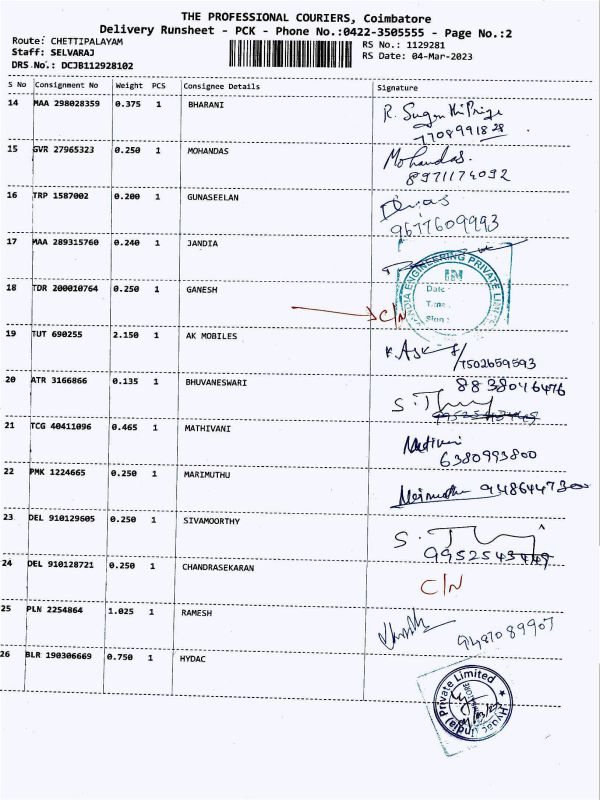 THE PROFESSIONAL COURIERS, Coimbatore
Delivery Runsheet - PCK - Phone No.:0422-3505555 - Page No.:2
Route: CHETTIPALAYAM
Staff: SELVARAJ
DRS No.: DCJB112928102
RS No.: 1129281
RS Date: 04-Mar-2023
S No Consignment No Weight PCS Consignee Details Signature
14 MAA 298028359 0.375 1 BHARANI
7708991828
15 GVR 27965323 0.250 1 MOHANDAS Mohandas.
8971174092
16 TRP 1587002 0.200 1 GUNASEELAN
9677609993
17 MAA 289315760 0.240 1 JANDIA
ENGINEERING PRIVATE
Date :
Time :
Sign :
18 TDR 200010764 0.250 1 GANESH C/N
19 TUT 690255 2.150 1 AK MOBILES
7502659593
20 ATR 3166866 0.135 1 BHUVANESWARI 8838046476
21 TCG 40411096 0.465 1 MATHIVANI
6380993800
22 PMK 1224665 0.250 1 MARIMUTHU 9486447300
23 DEL 910129605 0.250 1 SIVAMOORTHY
9952543449
24 DEL 910128721 0.250 1 CHANDRASEKARAN C/N
25 PLN 2254864 1.025 1 RAMESH 9487089907
26 BLR 190306669 0.750 1 HYDAC
Hydac (India) Private Limited